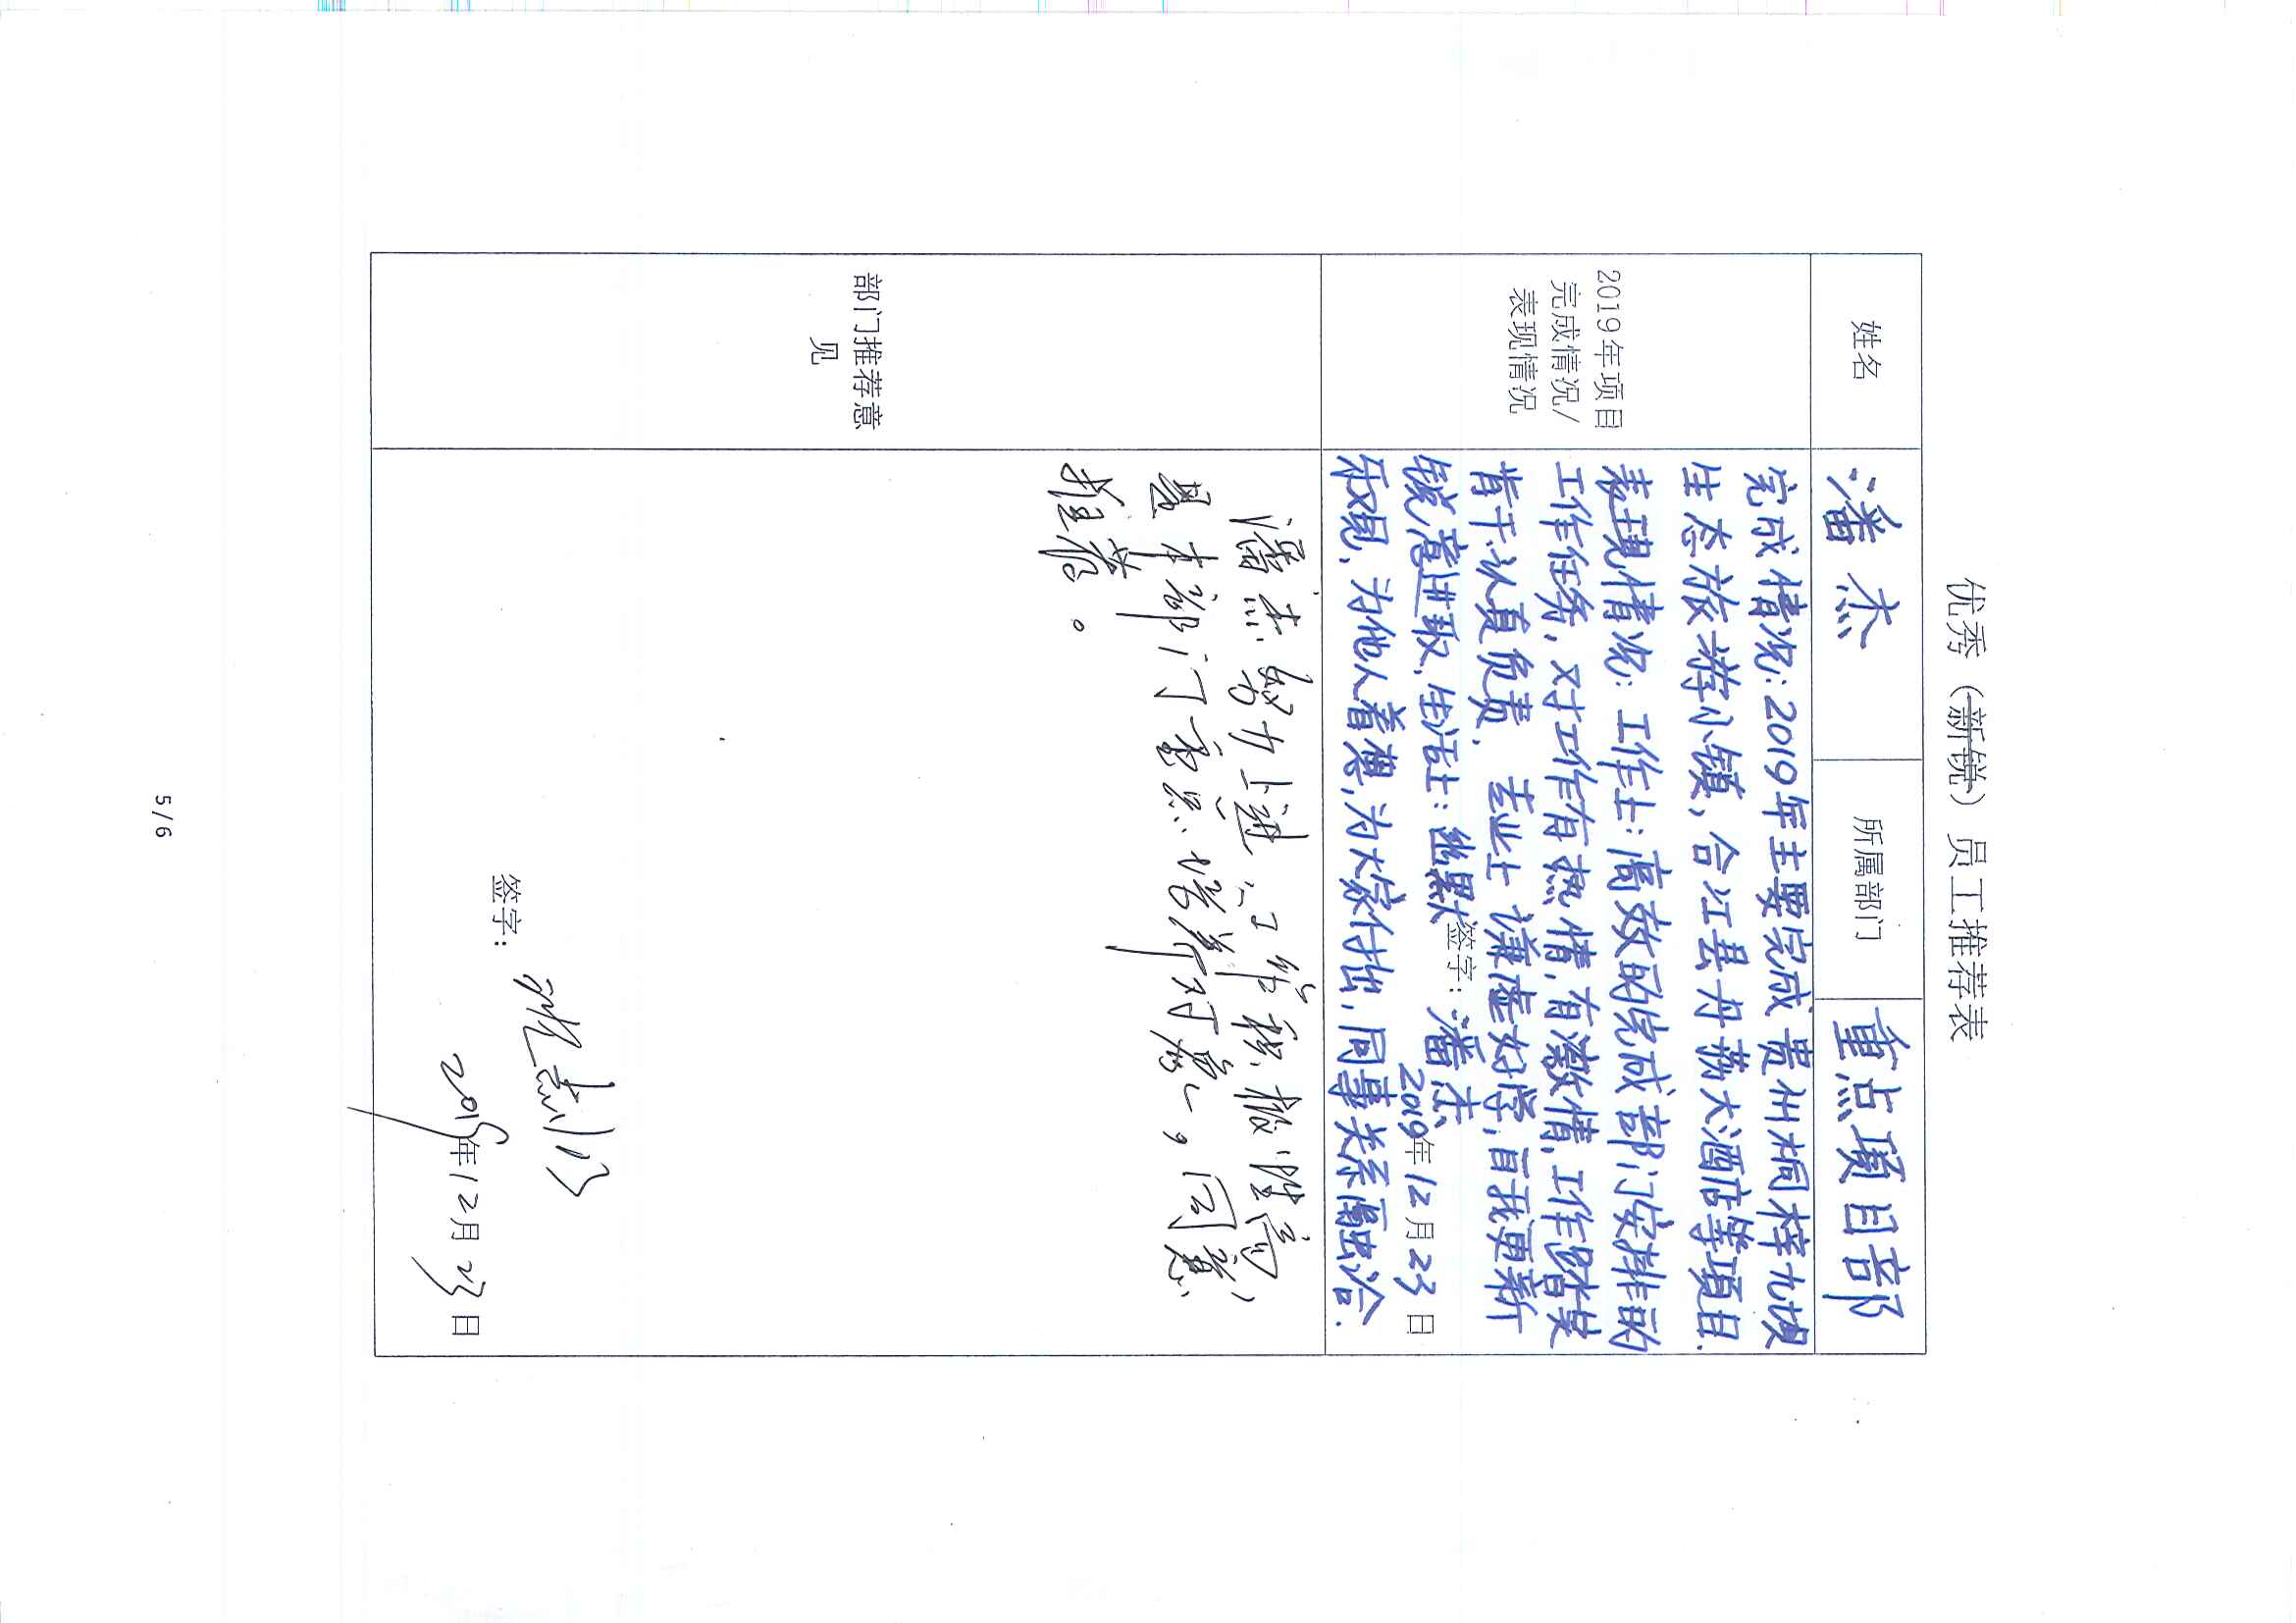 优秀（新锐）员工推荐表
姓名 潘杰 所属部门 重点项目部
2019年项目
完成情况/
表现情况
完成情况:2019年主要完成贵州桐梓九坝
生态旅游小镇、合江县丹荔大酒店等项目.
表现情况: 工作上: 高效的完成部门安排的
工作任务, 对工作有热情, 有激情, 工作踏实
肯干.认真负责. 专业上 谦虚好学, 自我更新
锐意进取, 生活上: 幽默 签字: 潘杰
乐观, 为他人着想, 为大家付出, 同事关系融洽.
2019年12月23日
部门推荐意
见
潘杰努力上进,工作积极性高,
是本部门重点培养对象,同意
推荐。
签字:
2019年12月23日
5/6